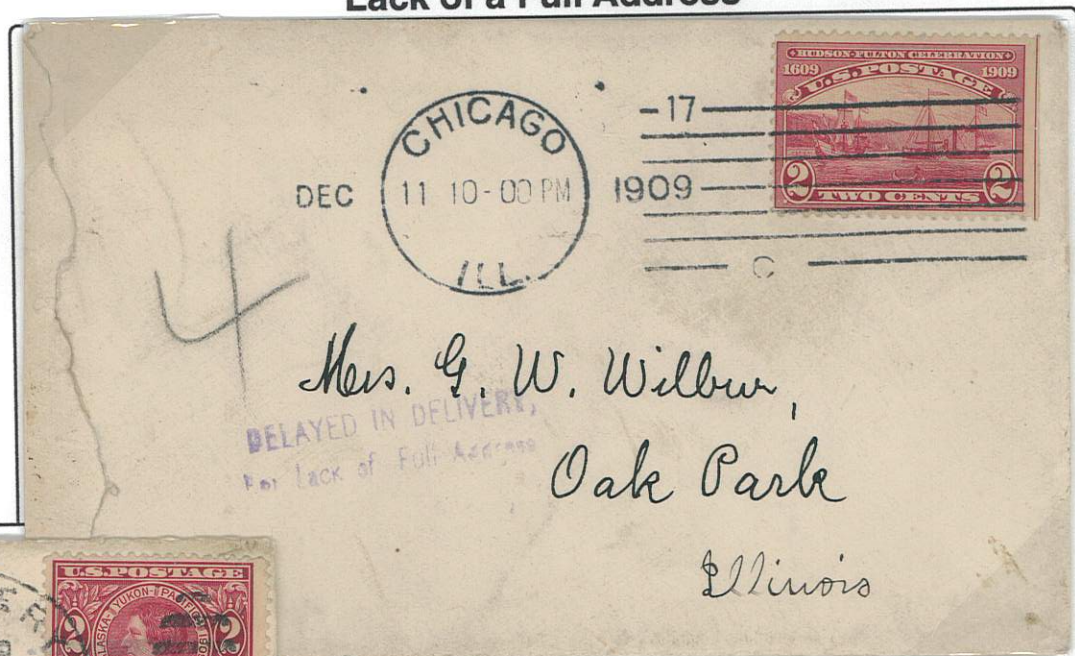 Lack of a Full Address
HUDSON-FULTON CELEBRATION
1609 1909
U.S. POSTAGE
2 TWO CENTS 2
CHICAGO
ILL.
DEC 11 10-00 PM 1909
-17-
C
4
Mrs. G. W. Wilbur,
Oak Park
Illinois
DELAYED IN DELIVERY,
For Lack of Full Address
U.S. POSTAGE
ALASKA-YUKON-PACIFIC 1909
2 2